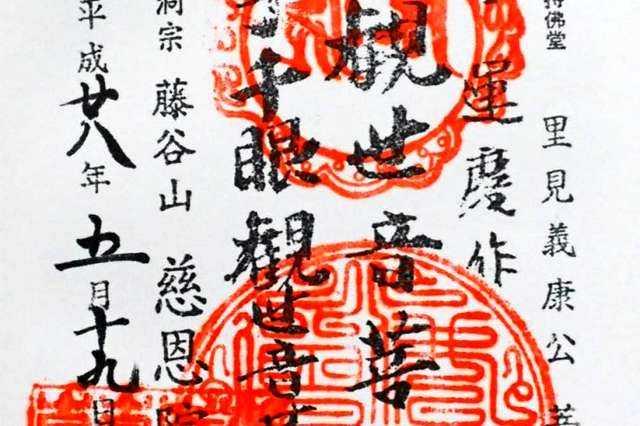 持佛堂 里見義康公 菩
運慶作
観世音菩
千眼観世音菩
洞宗 藤谷山 慈恩院
平成廿八年五月十九日